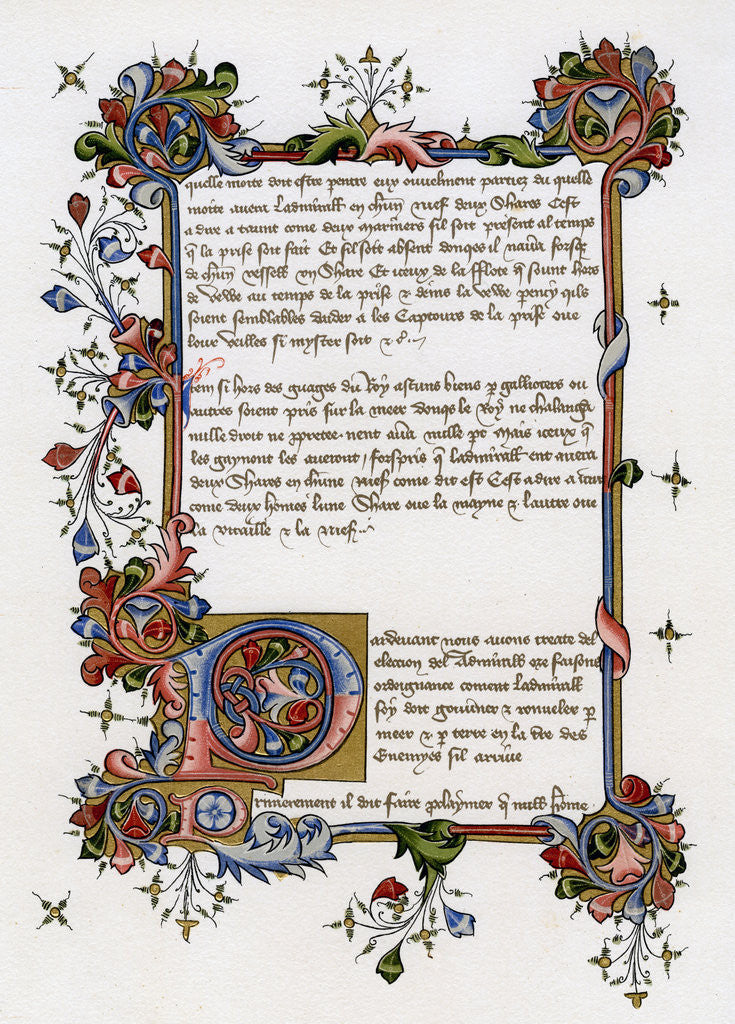 quelle moite doit estre pentre eux ouuelment partiez du quelle
moite auera ladmirall en chun nief deux Shares Cest
a dire a taunt come deux mariners sil soit present al temps
q la prise soit fait Et sil soit absent donqes il naua forsq
de chun vessell vn Share Et iceux de la fflote q sount hors
de vewe au temps de la prise & deins la vewe
soient semblables daider a les Captours de la prise oue
lour veilles si myster soit &c
Item si hors des guages du Roy ascuns biens p galliotes ou
autres soient pris sur la meer donqs le Roy ne chalanga
nulle droit ne nent aua nulle pt Mais iceux q
les gaynont les aueront forspris q ladmirall ent auera
deux Shares en chune Nief come dit est Cest a dire a
come deux homes lune Share oue la mayne & lautre oue
la vitaille & la Nief
Pardeuant nous auons treate del
eleccion del Admirall ore faisone
ordeignance coment ladmirall
soy doit gouuner & p
meer & p terre en la tre des
Enemyes sil arriue
Primerement il doit faire pclaymer q null home